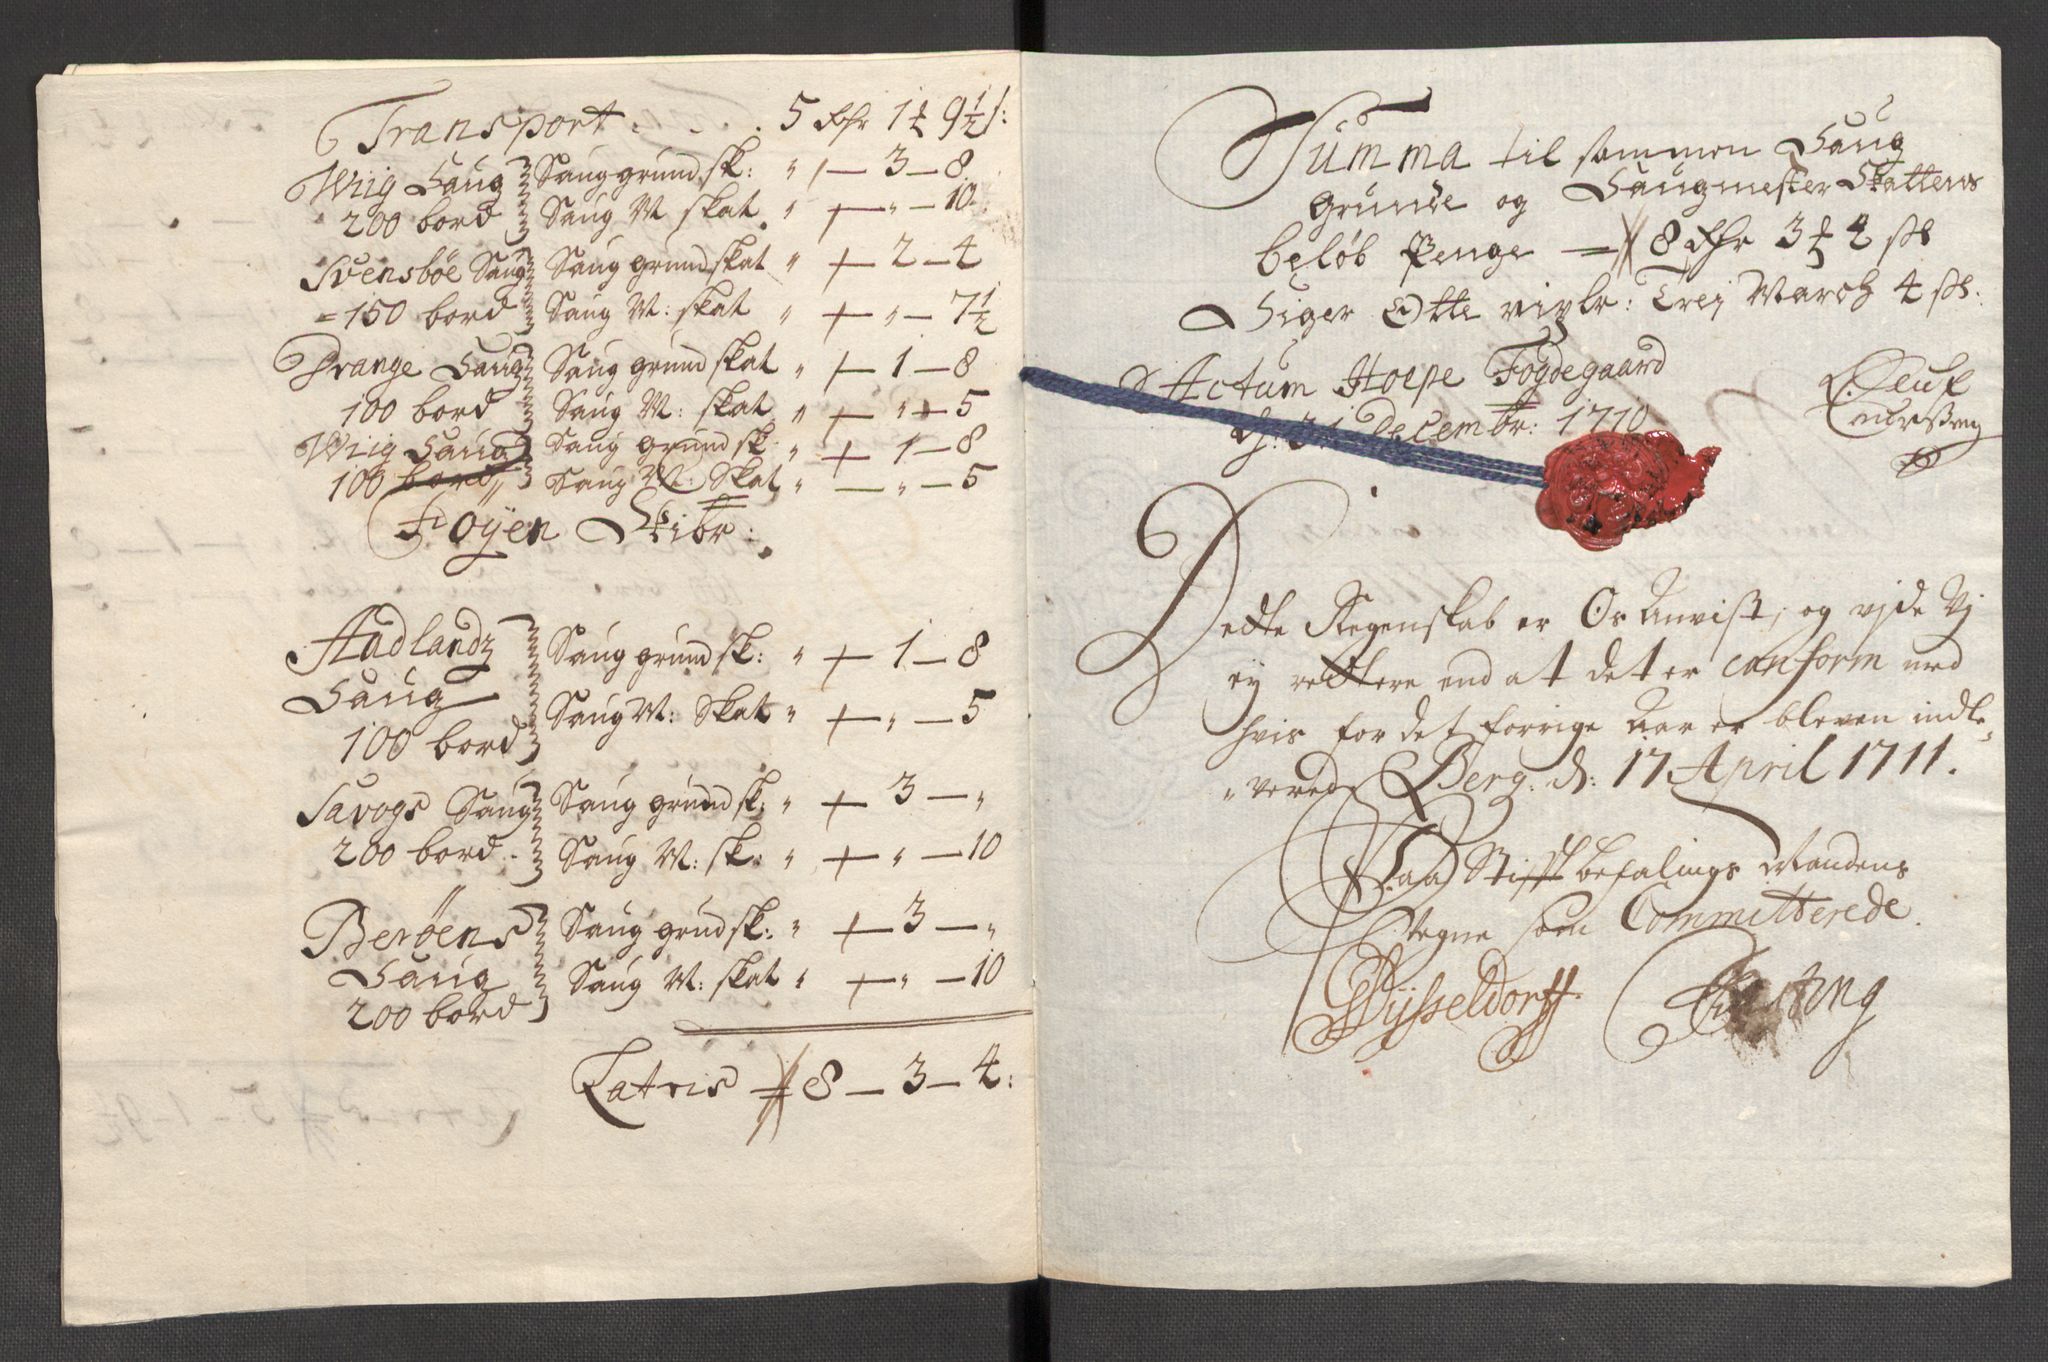 Transport . . . 5 Rdr 1 ℔ 9½ s:
Wiig Saug Saug grund sk: " — 3 — 8
200 bord Saug M skat " — " — 10
Svensböe Saug Saug grund skat " — 2 — 4
150 bord Saug M: skat " — " — 7½
Drange Saug Saug grund skat " — 1 — 8
100 bord Saug M: skat " — " — 5
Wiig Saug Saug grund sk " — 1 — 8
100 bord Saug M: Skat " — " — 5
Föyen Skibr:
Aadlandz Saug grund sk: " — 1 — 8
Saug Saug M: Skat " — " — 5
100 bord
Sævogs Saug Saug grund sk: " — 3 — "
200 bord. Saug M: sk: " — " — 10
Beröens Saug grund sk: " — 3 — "
Saug Saug M: skat " — " — 10
200 bord
Latris 8 — 3 — 4:
Summa til sammen Saug
Grunde og Saugmester Skattens
beløb Penge — 8 Rdr 3 ℔ 4 sk
Siger Otte rixdr: Trej March 4 sk:
Actum Hope Fogdegaard
d: 31 Decembr: 1710
Dette Regenskab er Os Anvist, og vide Vj
ey rettere end at det er conform med
hvis for det forrige Aar er bleven indle-
"verede Berg. d: 17 April 1711.
Paa Stifft befalings Mandens
Vegne som Committerede.